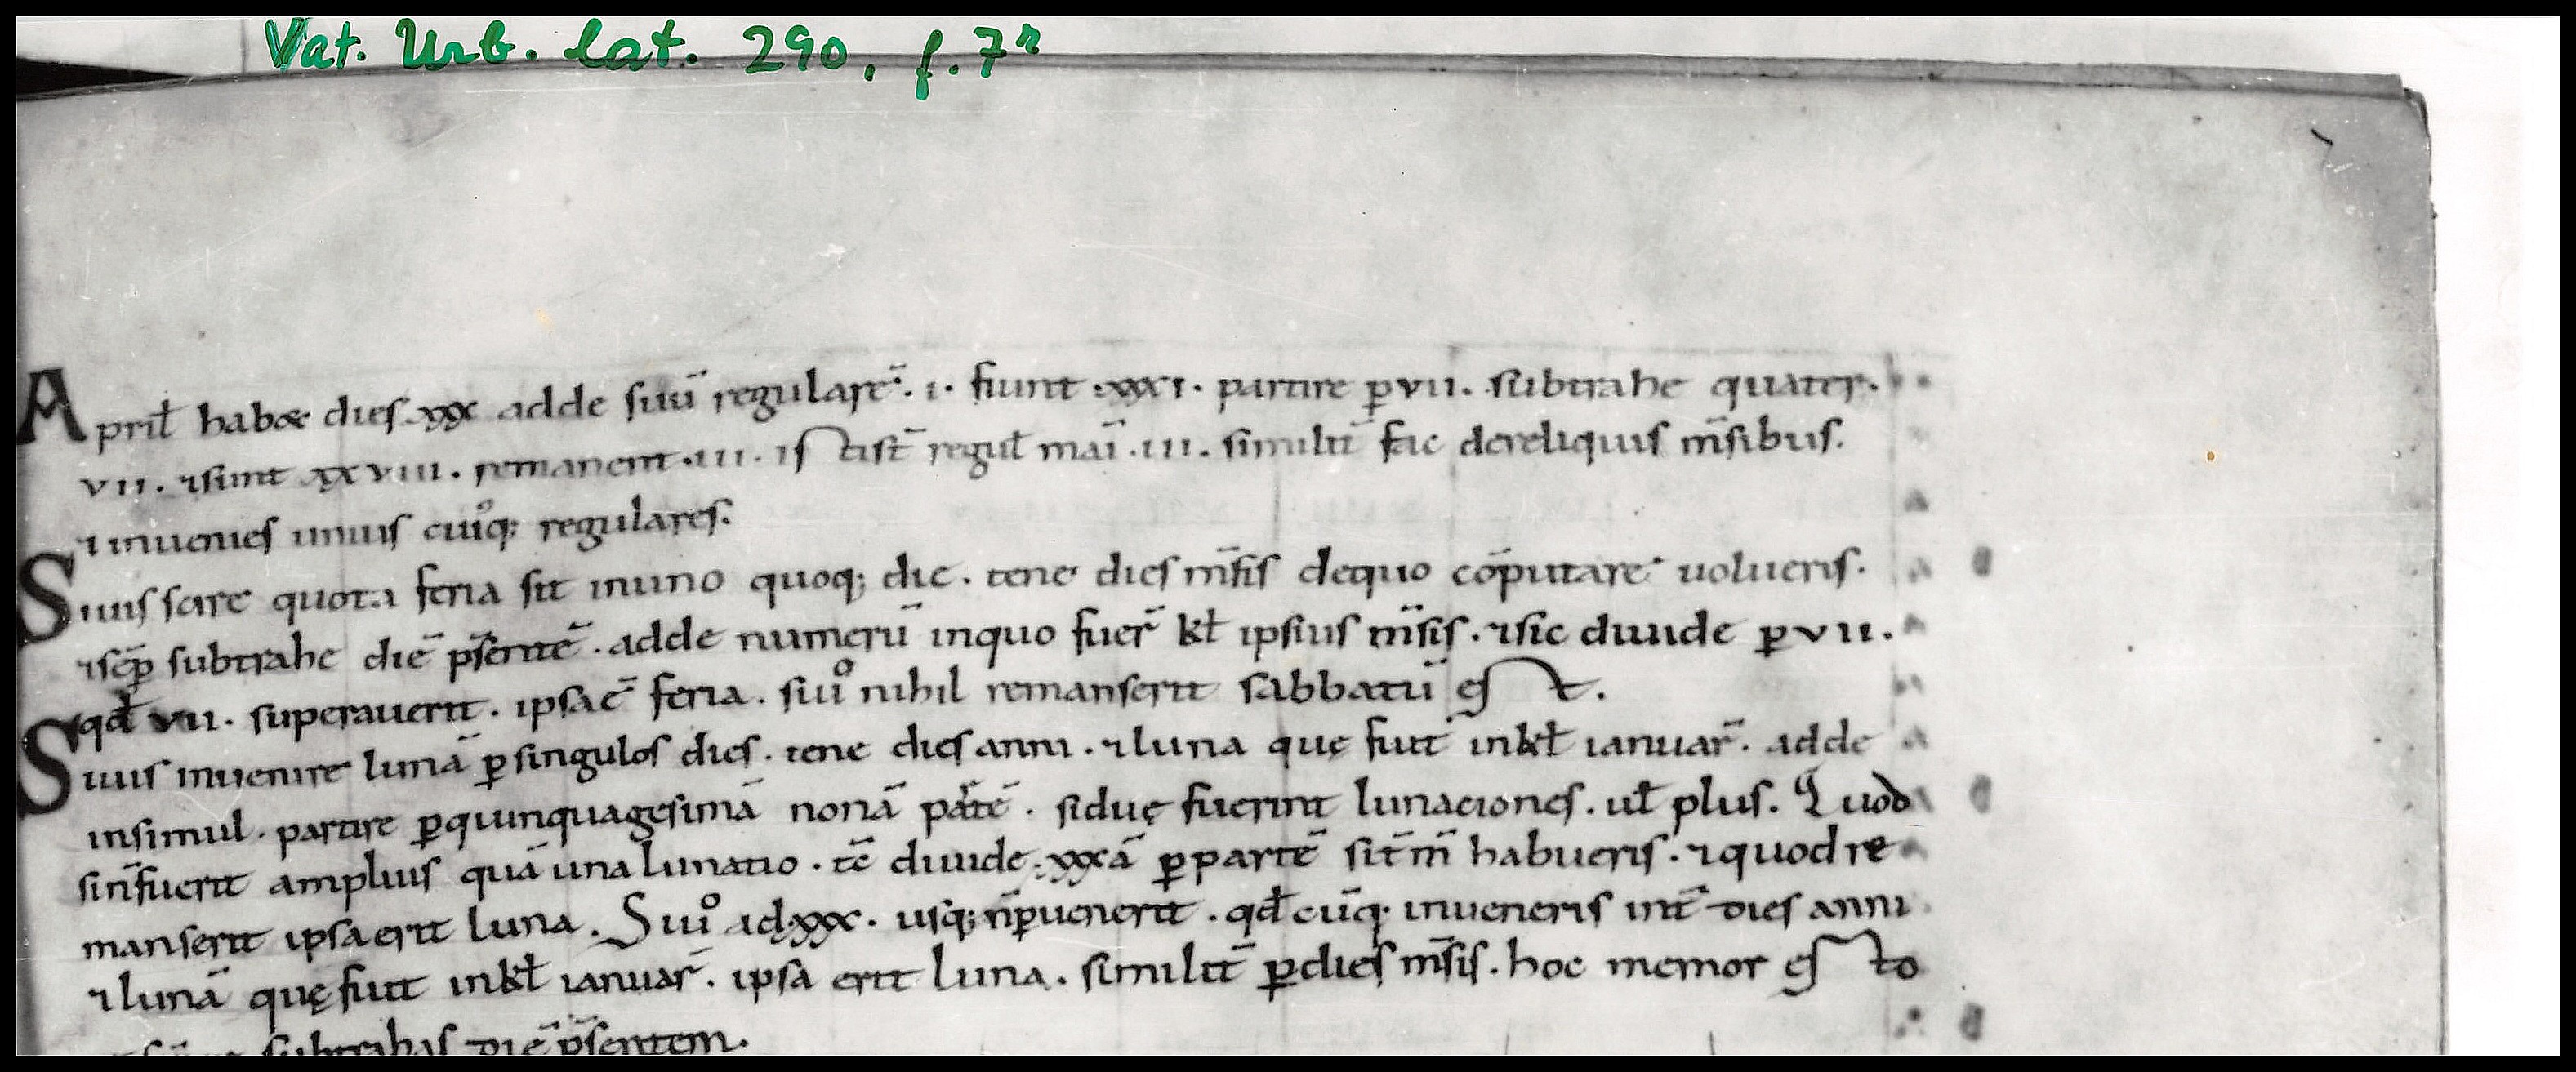 Vat. Urb. lat. 290, f. 7r
Aprił habet dies xxx adde suū regularē. i. fiunt xxxi. partire ꝑ vii. subtrahe quater.
vii. ⁊ sunt xxviii. remanent iii. iſti sł regul mai. iii. similit̄ fac dereliquis m̄sibus.
⁊ inuenies unius cuiꝰq; regulares.
Siuis scire quota feria sit inuno quoq; die. tene dies m̄sis dequo cōputare uolueris.
⁊ sēp subtrahe diē p̄sentē. adde numerū inquo fuer̄ kł ipsius m̄sis. ⁊ sic diuide ꝑ vii.
qđ vii. superauerit. ipsa ē feria. siu° nihil remanserit sabbatū est.
Siuis inuenire lunā ꝑ singulos dies. tene dies anni. ⁊ luna quę fuit inkł ianuar̄. adde
insimul. partire ꝑ quinquagesimā nonā partē. si duę fuerint lunaciones. uł plus. Quod
si n̄ fuerit amplius quā una lunatio. tē diuide xxxā ꝑ partē si tm̄ habueris. ⁊ quod re
manserit ipsa erit luna. Siu° ad xxx. usq; n̄ ꝑuenerit. qđ cūq; inueneris int̄ dies anni
⁊ lunā quę fuit inkł ianuar̄. ipsa erit luna. similit̄ ꝑ dies m̄sis. hoc memor esto
subtrahas diē p̄sentem.